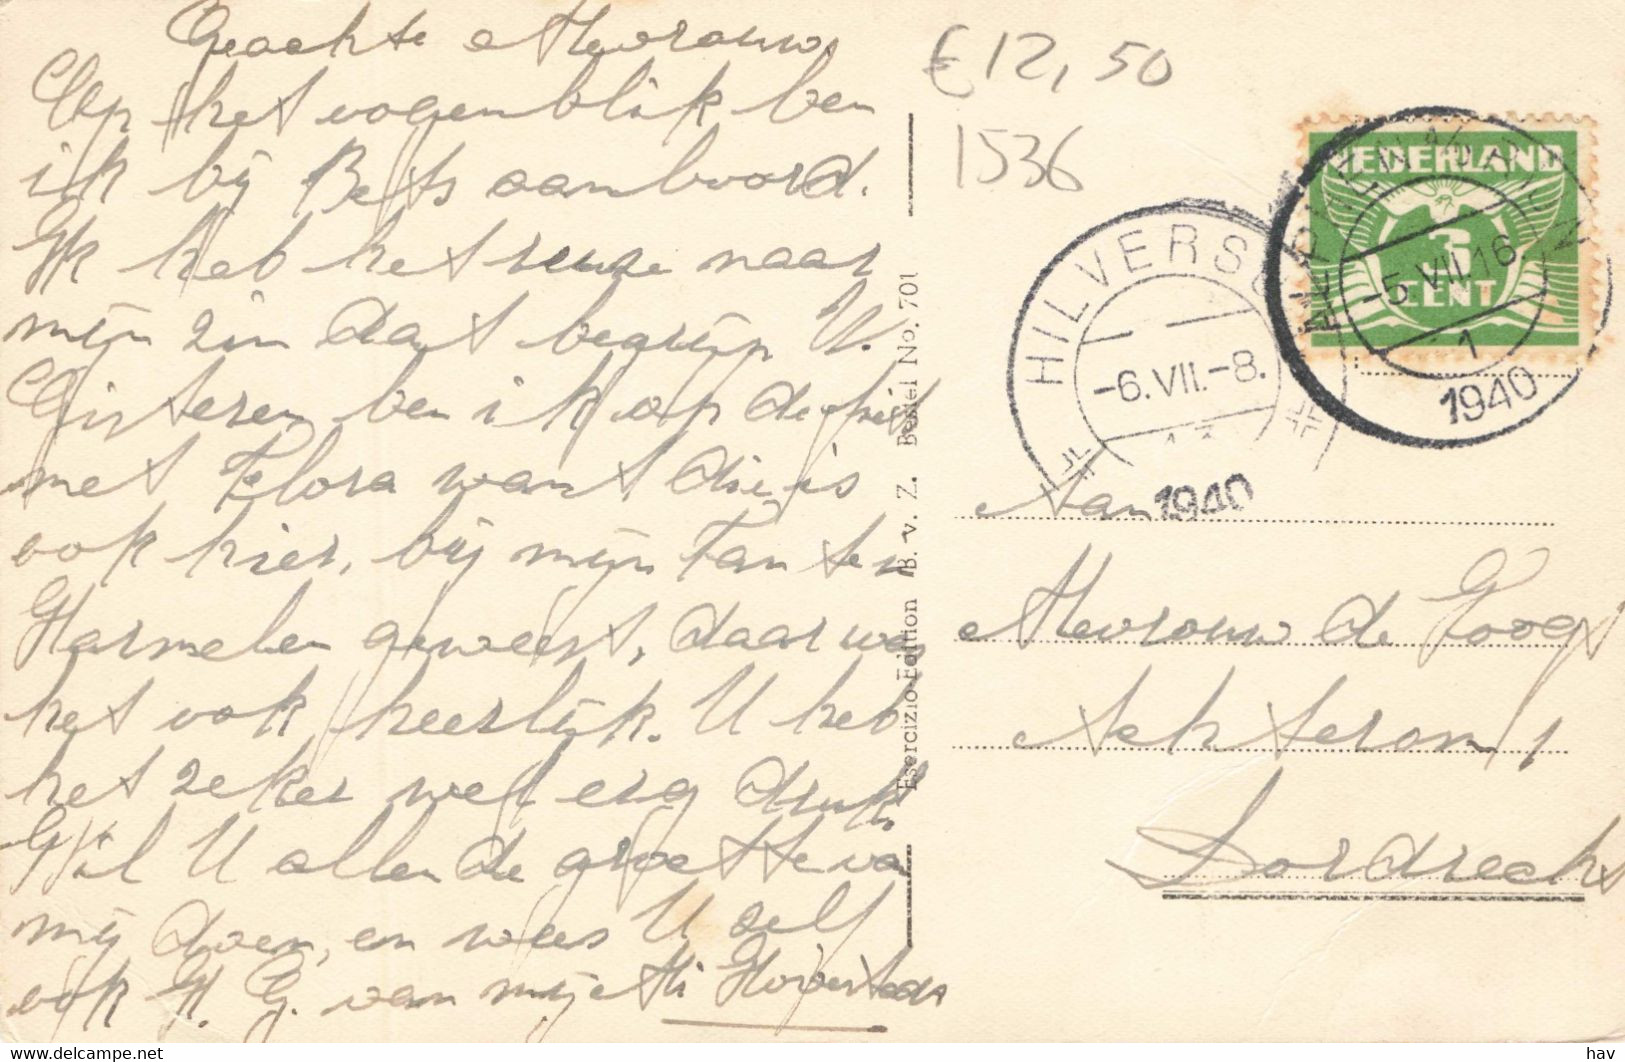 Geachte Mevrouw,
Op het oogenblik ben
ik bij Bets aanboord.
Ik heb het reuze naar
mijn zin dat begrijp U.
Gisteren ben ik op de fiets
met Flora want die is
ook hier, bij mijn Tante in
Harmelen geweest, daar was
het ook heerlijk. U heb
het zeker wel erg druk.
Wil U allen de groette van
mij doen, en wees U zelf
ook H. G. van mij
€ 12,50
1536
NEDERLAND
3
CENT
-5.VII.16
1
1940
HILVERSUM
-6.VII.-8.
1940
Esercizio-Edition B. v. Z. Bestel No. 701
Aan
Mevrouw de
Achterom 1
Dordrecht
delcampe.net
hav